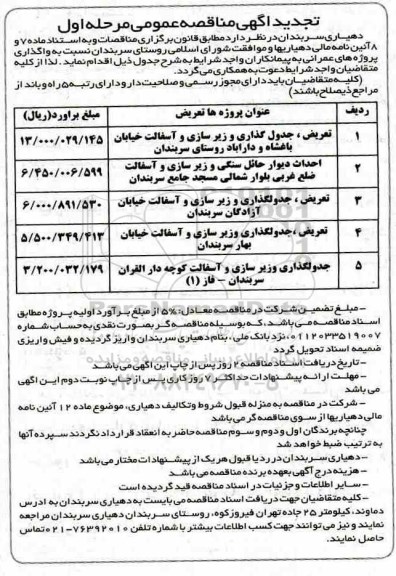 تجدید آگهی مناقصه عمومی مرحله اول
دهیاری سربندان در نظر دارد مطابق قانون برگزاری مناقصات و به استناد ماده ۷ و
۸ آئین نامه مالی دهیاریها و موافقت شورای اسلامی روستای سربندان نسبت به واگذاری
پروژه های عمرانی به پیمانکاران واجد شرایط به شرح جدول ذیل اقدام نماید. لذا از کلیه
متقاضیان واجد شرایط دعوت به همکاری می گردد.
(کلیه متقاضیان باید دارای مجوز رسمی و صلاحیت دار و دارای رتبه ۵ راه و باند از
مراجع ذیصلاح باشند)
ردیف عنوان پروژه ها تعریض مبلغ برآورد(ریال)
۱ تعریض ، جدول گذاری و زیر سازی و آسفالت خیابان باغشاه و داراباد روستای سربندان ۱۳/۰۰۰/۰۲۹/۱۴۵
۲ احداث دیوار حائل سنگی و زیر سازی و آسفالت ضلع غربی بلوار شمالی مسجد جامع سربندان ۶/۴۵۰/۰۰۶/۵۹۹
۳ تعریض ، جدولگذاری و زیر سازی و آسفالت خیابان آزادگان سربندان ۶/۰۰۰/۸۹۱/۵۳۰
۴ تعریض ،جدولگذاری وزیر سازی و آسفالت خیابان بهار سربندان ۵/۵۰۰/۳۴۹/۴۱۳
۵ جدولگذاری وزیر سازی و آسفالت کوچه دار القران سربندان – فاز (۱) ۳/۲۰۰/۰۳۲/۱۷۹
– مبلغ تضمین شرکت در مناقصه معادل: ۵% از مبلغ برآورد اولیه پروژه مطابق
اسناد مناقصه می باشد، که بوسیله مناقصه گر بصورت نقدی به حساب شماره
۰۱۱۲۰۳۳۵۱۹۰۰۷ نزد بانک ملی ، بنام دهیاری سربندان واریز گردیده و فیش واریزی
ضمیمه اسناد تحویل گردد
– تاریخ دریافت اسناد مناقصه ۲ روز پس از چاپ این آگهی می باشد
– مهلت ارائه پیشنهادات حداکثر ۷ روز کاری پس از چاپ نوبت دوم این آگهی
می باشد
– شرکت در مناقصه به منزله قبول شروط و تکالیف دهیاری ، موضوع ماده ۱۲ آئین نامه
مالی دهیاریها از سوی مناقصه گر می باشد
چنانچه برندگان اول و دوم و سوم مناقصه حاضر به انعقاد قرارداد نگردند سپرده آنها
به ترتیب ضبط خواهد شد
– دهیاری سربندان در رد یا قبول هر یک از پیشنهادات مختار می باشد
– هزینه درج آگهی بعهده برنده مناقصه می باشد
– سایر اطلاعات و جزئیات در اسناد مناقصه قید گردیده است
– کلیه متقاضیان جهت دریافت اسناد مناقصه می بایست به دهیاری سربندان به ادرس
دماوند، کیلومتر ۲۵ جاده تهران فیروزکوه ، روستای سربندان دهیاری سربندان مراجعه
نمایند و نیز می توانند جهت کسب اطلاعات بیشتر با شماره تلفن ۷۶۳۹۲۰۱۰-۰۲۱ تماس
حاصل نمایند.